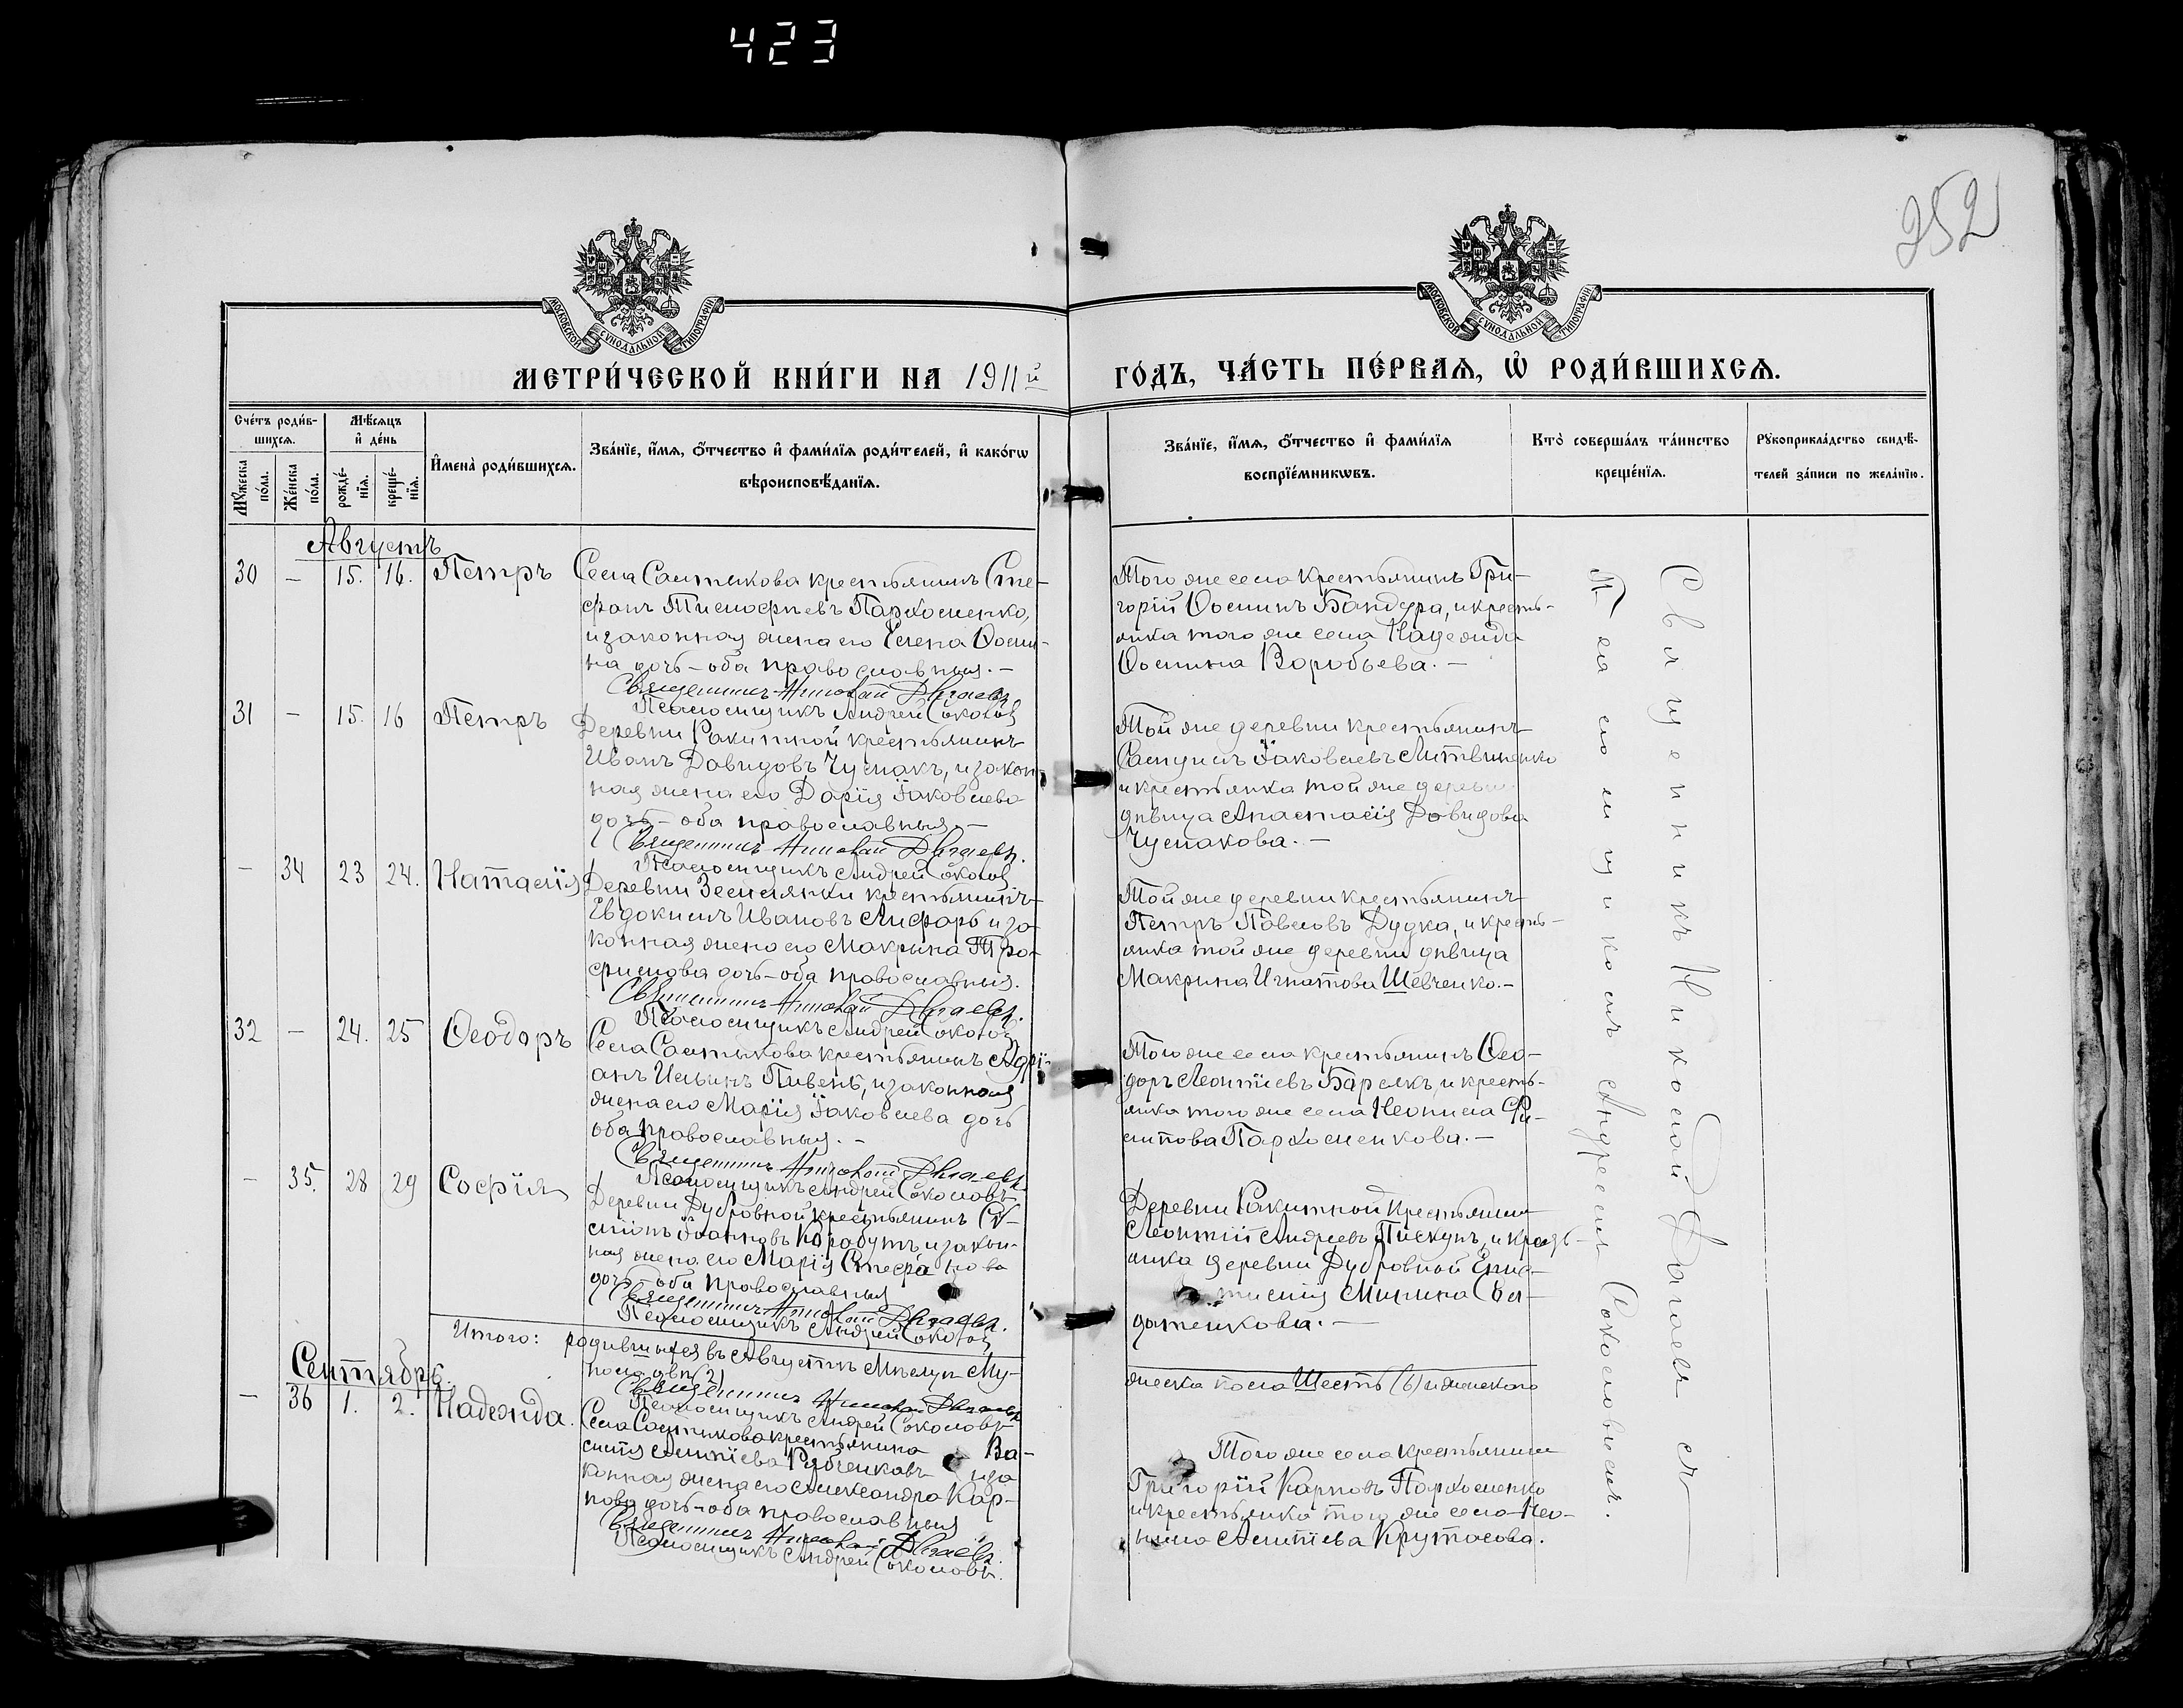 423
252
МОСКОВСКОЙ СѴНОДАЛЬНОЙ ТИПОГРАФІИ
МОСКОВСКОЙ СѴНОДАЛЬНОЙ ТИПОГРАФІИ
МЕТРИ́ЧЕСКОЙ КНИ́ГИ НА 1911й ГО́ДЪ, ЧА́СТЬ ПЕ́РВАЯ, Ѡ҆ РОДИ́ВШИХСЯ.
Сче́тъ роди́в-
шихся.
Мѣ́сяцъ
и҆ де́нь
Мꙋ́жеска
по́ла.
Же́нска
по́ла.
рожде́-
нїя.
креще́-
нїя.
И҆мена̀ роди́вшихся.
Зва́нїе, и҆́мя, ѻ҆́тчество и҆ фами́лїя роди́телей, и҆ како́гѡ
вѣроисповѣ́данїя.
Зва́нїе, и҆́мя, ѻ҆́тчество и҆ фами́лїя
воспрїе́мникѡвъ.
Кто̀ соверша́лъ та́инство
креще́нїя.
Рꙋкоприкла́дство свидѣ́-
телей за́писи по жела́нїю.
Августъ
30 — 15. 16. Петръ
Села Салтыкова крестьянинъ Сте-
фанъ Тимофеевъ Пархоменко,
и законная жена его Елена Ѳоми-
на дочь – оба православныя. –
Священникъ Николай Дѣгаевъ.
Псаломщикъ Андрей Соколов
Того же села крестьянинъ Гри-
горій Ѳоминъ Бандура, и кресть-
янка того же села Надежда
Ѳомина Воробьева. –
31 — 15. 16 Петръ
Деревни Ракитной крестьянинъ
Иванъ Давидовъ Чумакъ, и закон-
ная жена его Дарія Іаковлева
дочь – оба православныя. –
Священникъ Николай Дѣгаевъ.
Псаломщикъ Андрей Соколов
Той же деревни крестьянинъ
Самуилъ Іаковлевъ Литвиненко
и крестьянка той же деревни
дѣвица Анастасія Давидова
Чумакова. –
— 34 23 24. Наталія
Деревни Землянки крестьянинъ
Евдокимъ Ивановъ Лифарь и за-
конная жена его Макрина Тро-
фимова дочь – оба православныя.
Священникъ Николай Дѣгаевъ.
Псаломщикъ Андрей Соколов
Той же деревни крестьянинъ
Петръ Павловъ Дудка, и кресть-
янка той же деревни дѣвица
Макрина Игнатова Шевченко. –
32 — 24. 25 Ѳеодоръ
Села Салтыкова крестьянинъ Адрі-
анъ Ильинъ Пивень, и законная
жена его Марія Іаковлева дочь
оба православныя. –
Священникъ Николай Дѣгаевъ
Псаломщикъ Андрей Соколовъ
Того же села крестьянинъ Ѳео-
доръ Леонтіевъ Барсукъ, и кресть-
янка того же села Неонила Фи-
липова Пархоменкова. –
— 35. 28 29 Софія
Деревни Дубровной крестьянинъ
Іоанновъ Корабутъ, и закон-
ная жена его Марія Стефанова
дочь – оба православныя
Священникъ Николай Дѣгаевъ.
Псаломщикъ Андрей Соколов
Деревни Ракитной крестьянинъ
Леонтій Андреевъ Пискунъ, и кресть-
янка деревни Дубровной
Минина
Итого: родившихся въ Августѣ Мѣсяцѣ Му-
жеска пола Шесть (6) и женскаго
пола двѣ (2)
Священникъ Николай Дѣгаевъ
Псаломщикъ Андрей Соколовъ
Сентябрь.
— 36 1. 2. Надежда.
Села Салтыкова крестьянина Ва-
силія Рябченковъ и за-
конная жена его Александра Кар-
пова дочь – оба православныя
Священникъ Николай Дѣгаевъ.
Псаломщикъ Андрей Соколовъ.
Того же села крестьянинъ
Григорій Карповъ Пархоменко
и крестьянка того же села Нео-
нила Крутасова.
Священникъ Николай Дѣгаевъ съ
Псаломщикомъ Андреемъ Соколовымъ.